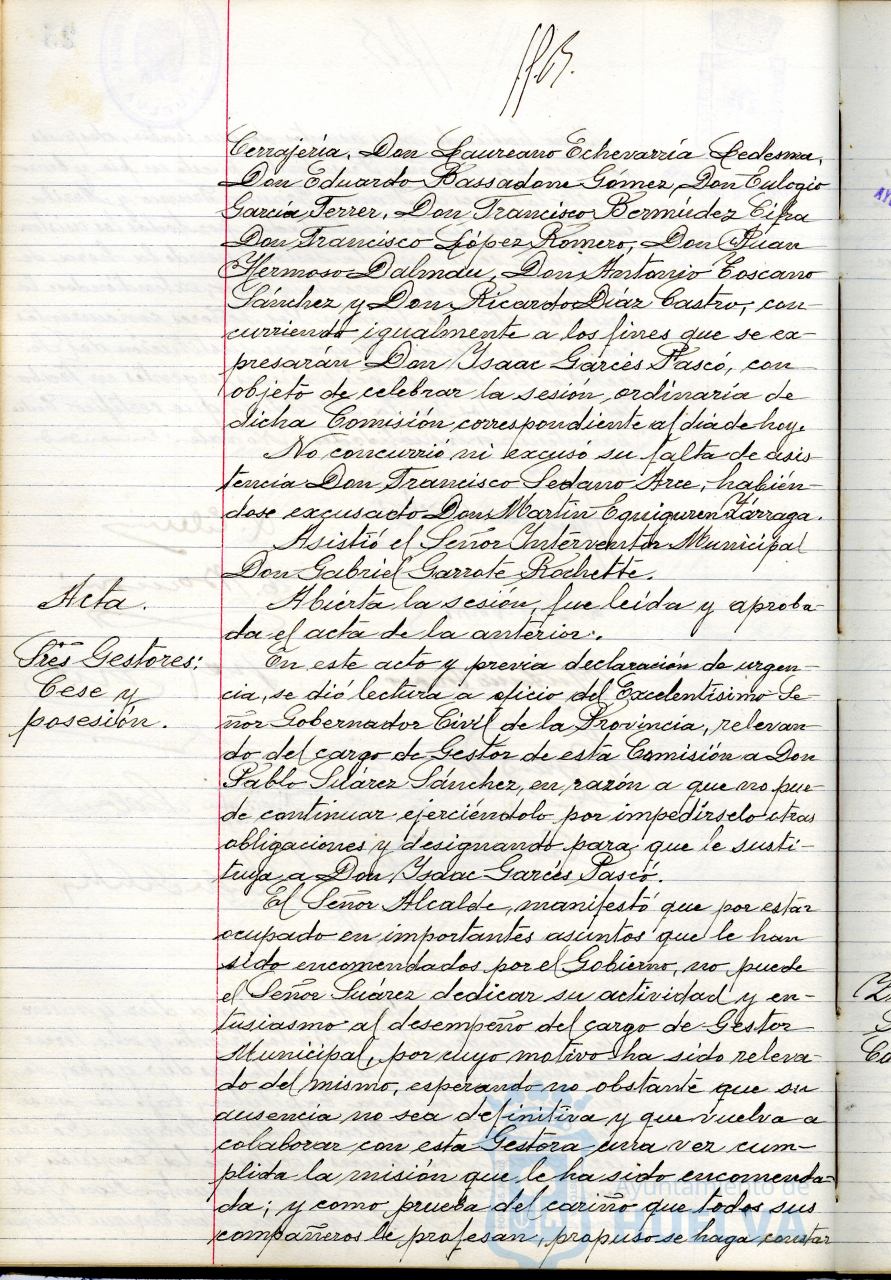 Cerrajería, Don Laureano Echevarría Ledesma,
Don Eduardo Bassadone Gómez, Don Eulogio
García Ferrer, Don Francisco Bermúdez Cifra
Don Francisco López Romero, Don Juan
Hermoso Dalmau, Don Antonio Toscano
Sánchez y Don Ricardo Díaz Castro, con-
curriendo igualmente a los fines que se ex-
presarán Don Isaac Garcés Pascó, con
objeto de celebrar la sesión ordinaria de
dicha Comisión correspondiente al día de hoy.
No concurrió ni excusó su falta de asis-
tencia Don Francisco Sedano Arce, habién-
dose excusado Don Martín Eguiguren Zárraga.
Asistió el Señor Interventor Municipal
Don Gabriel Garrote Rochette.
Acta.
Abierta la sesión, fue leída y aproba-
da el acta de la anterior.
Sres Gestores:
Cese y
posesión.
En este acto y previa declaración de urgen-
cia, se dió lectura a oficio del Excelentísimo Se-
ñor Gobernador Civil de la Provincia, relevan-
do del cargo de Gestor de esta Comisión a Don
Pablo Suárez Sánchez, en razón a que no pue-
de continuar ejerciéndolo por impedírselo otras
obligaciones y designando para que le susti-
tuya a Don Isaac Garcés Pascó.
El Señor Alcalde, manifestó que por estar
ocupado en importantes asuntos que le han
sido encomendados por el Gobierno, no puede
el Señor Suárez dedicar su actividad y en-
tusiasmo al desempeño del cargo de Gestor
Municipal, por cuyo motivo ha sido releva-
do del mismo, esperando no obstante que su
ausencia no sea definitiva y que vuelva a
colaborar con esta Gestora una vez cum-
plida la misión que le ha sido encomenda-
da; y como prueba del cariño que todos sus
compañeros le profesan, propuso se haga constar
Ayuntamiento de
HUELVA